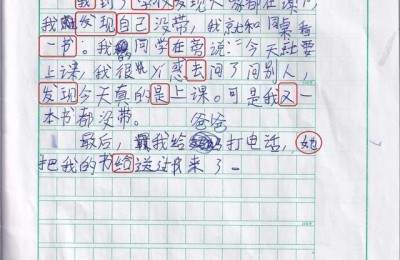 我到了学校发现大家都在读
我发现自己没带，我就和同桌看
一书。我同学在旁说：今天
上课，我很丫惑去问了问别人，
发现今天真的是上课。可是我又一
本书都没带。
爸爸
最后，我给打电话，她
把我的书给送过来了